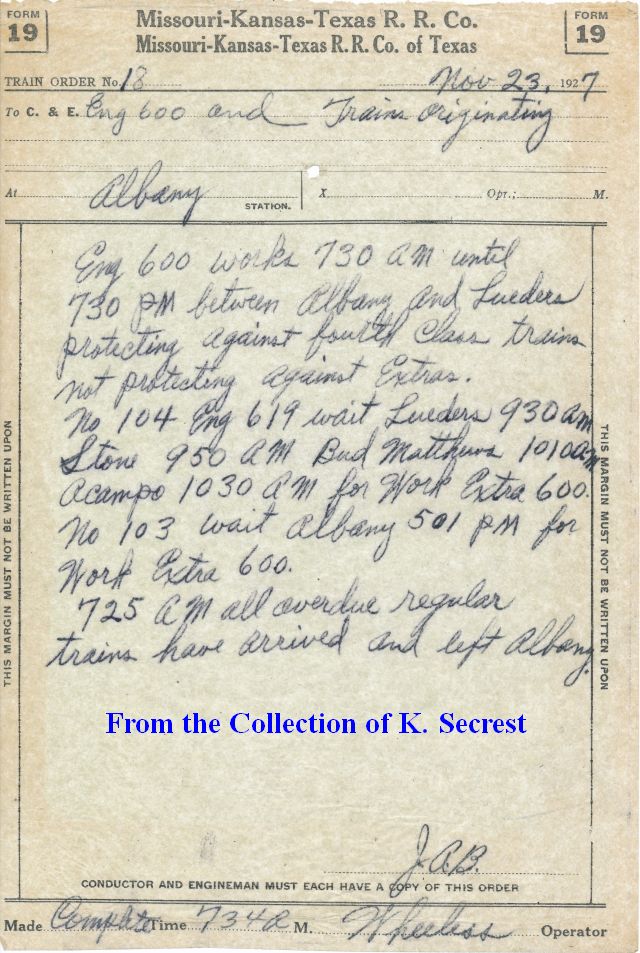 FORM 19
Missouri-Kansas-Texas R. R. Co.
Missouri-Kansas-Texas R. R. Co. of Texas
FORM 19
TRAIN ORDER No. 18 Nov 23, 1927
To C. & E. Eng 600 and Trains Originating
At Albany STATION. X Opr.; M.
Eng 600 works 730 AM until
730 PM between Albany and Lueders
protecting against fourth Class trains
not protecting against Extras.
No 104 Eng 619 wait Lueders 930 AM
Stone 950 AM Bud Matthews 1010 AM
Acampo 1030 AM for Work Extra 600.
No 103 wait Albany 501 PM for
Work Extra 600.
725 AM all overdue regular
trains have arrived and left Albany.
THIS MARGIN MUST NOT BE WRITTEN UPON
THIS MARGIN MUST NOT BE WRITTEN UPON
From the Collection of K. Secrest
J.A.B.
CONDUCTOR AND ENGINEMAN MUST EACH HAVE A COPY OF THIS ORDER
Made Complete Time 734 A M. Wheeless Operator